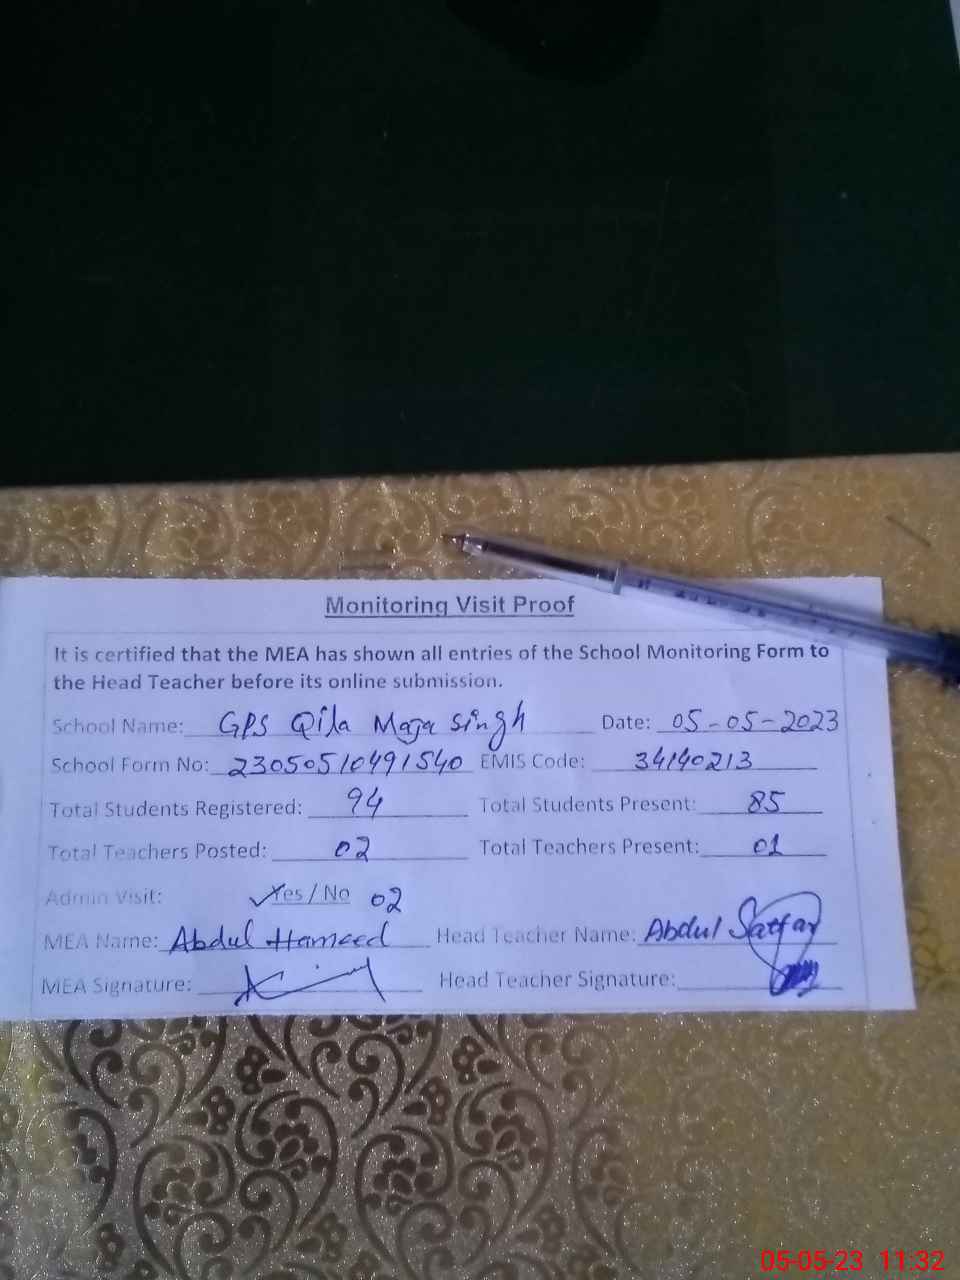 Monitoring Visit Proof
It is certified that the MEA has shown all entries of the School Monitoring Form to
the Head Teacher before its online submission.
School Name: GPS Qila Maja Singh Date: 05-05-2023
School Form No: 23050510491540 EMIS Code: 34140213
Total Students Registered: 94 Total Students Present: 85
Total Teachers Posted: 02 Total Teachers Present: 01
Admin Visit: ✓Yes / No 02
MEA Name: Abdul Hameed Head Teacher Name: Abdul Sattar
MEA Signature: Head Teacher Signature:
05-05-23 11:32